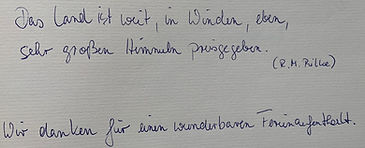 Das Land ist weit, in Winden, eben,
sehr großen Himmeln preisgegeben.
(R. M. Rilke)
Wir danken für einen wunderbaren Ferienaufenthalt.